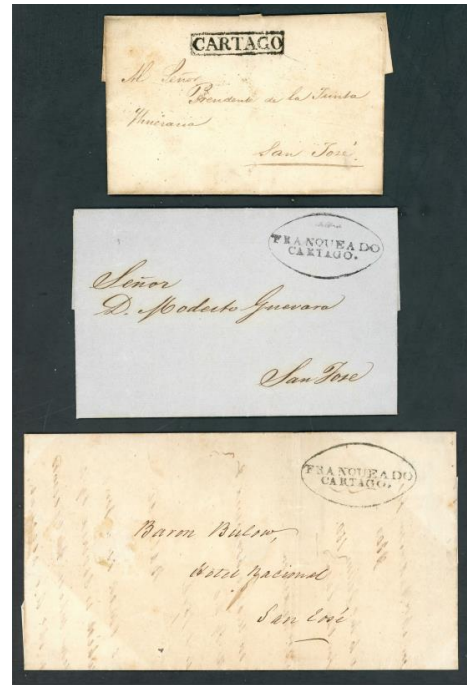 CARTAGO
Al Señor
Presidente de la Junta
Itineraria
San José
FRANQUEADO
CARTAGO.
Señor
D. Modesto Guevara
San Jose
FRANQUEADO
CARTAGO.
Baron Bulow,
Hotel Nacional
San José